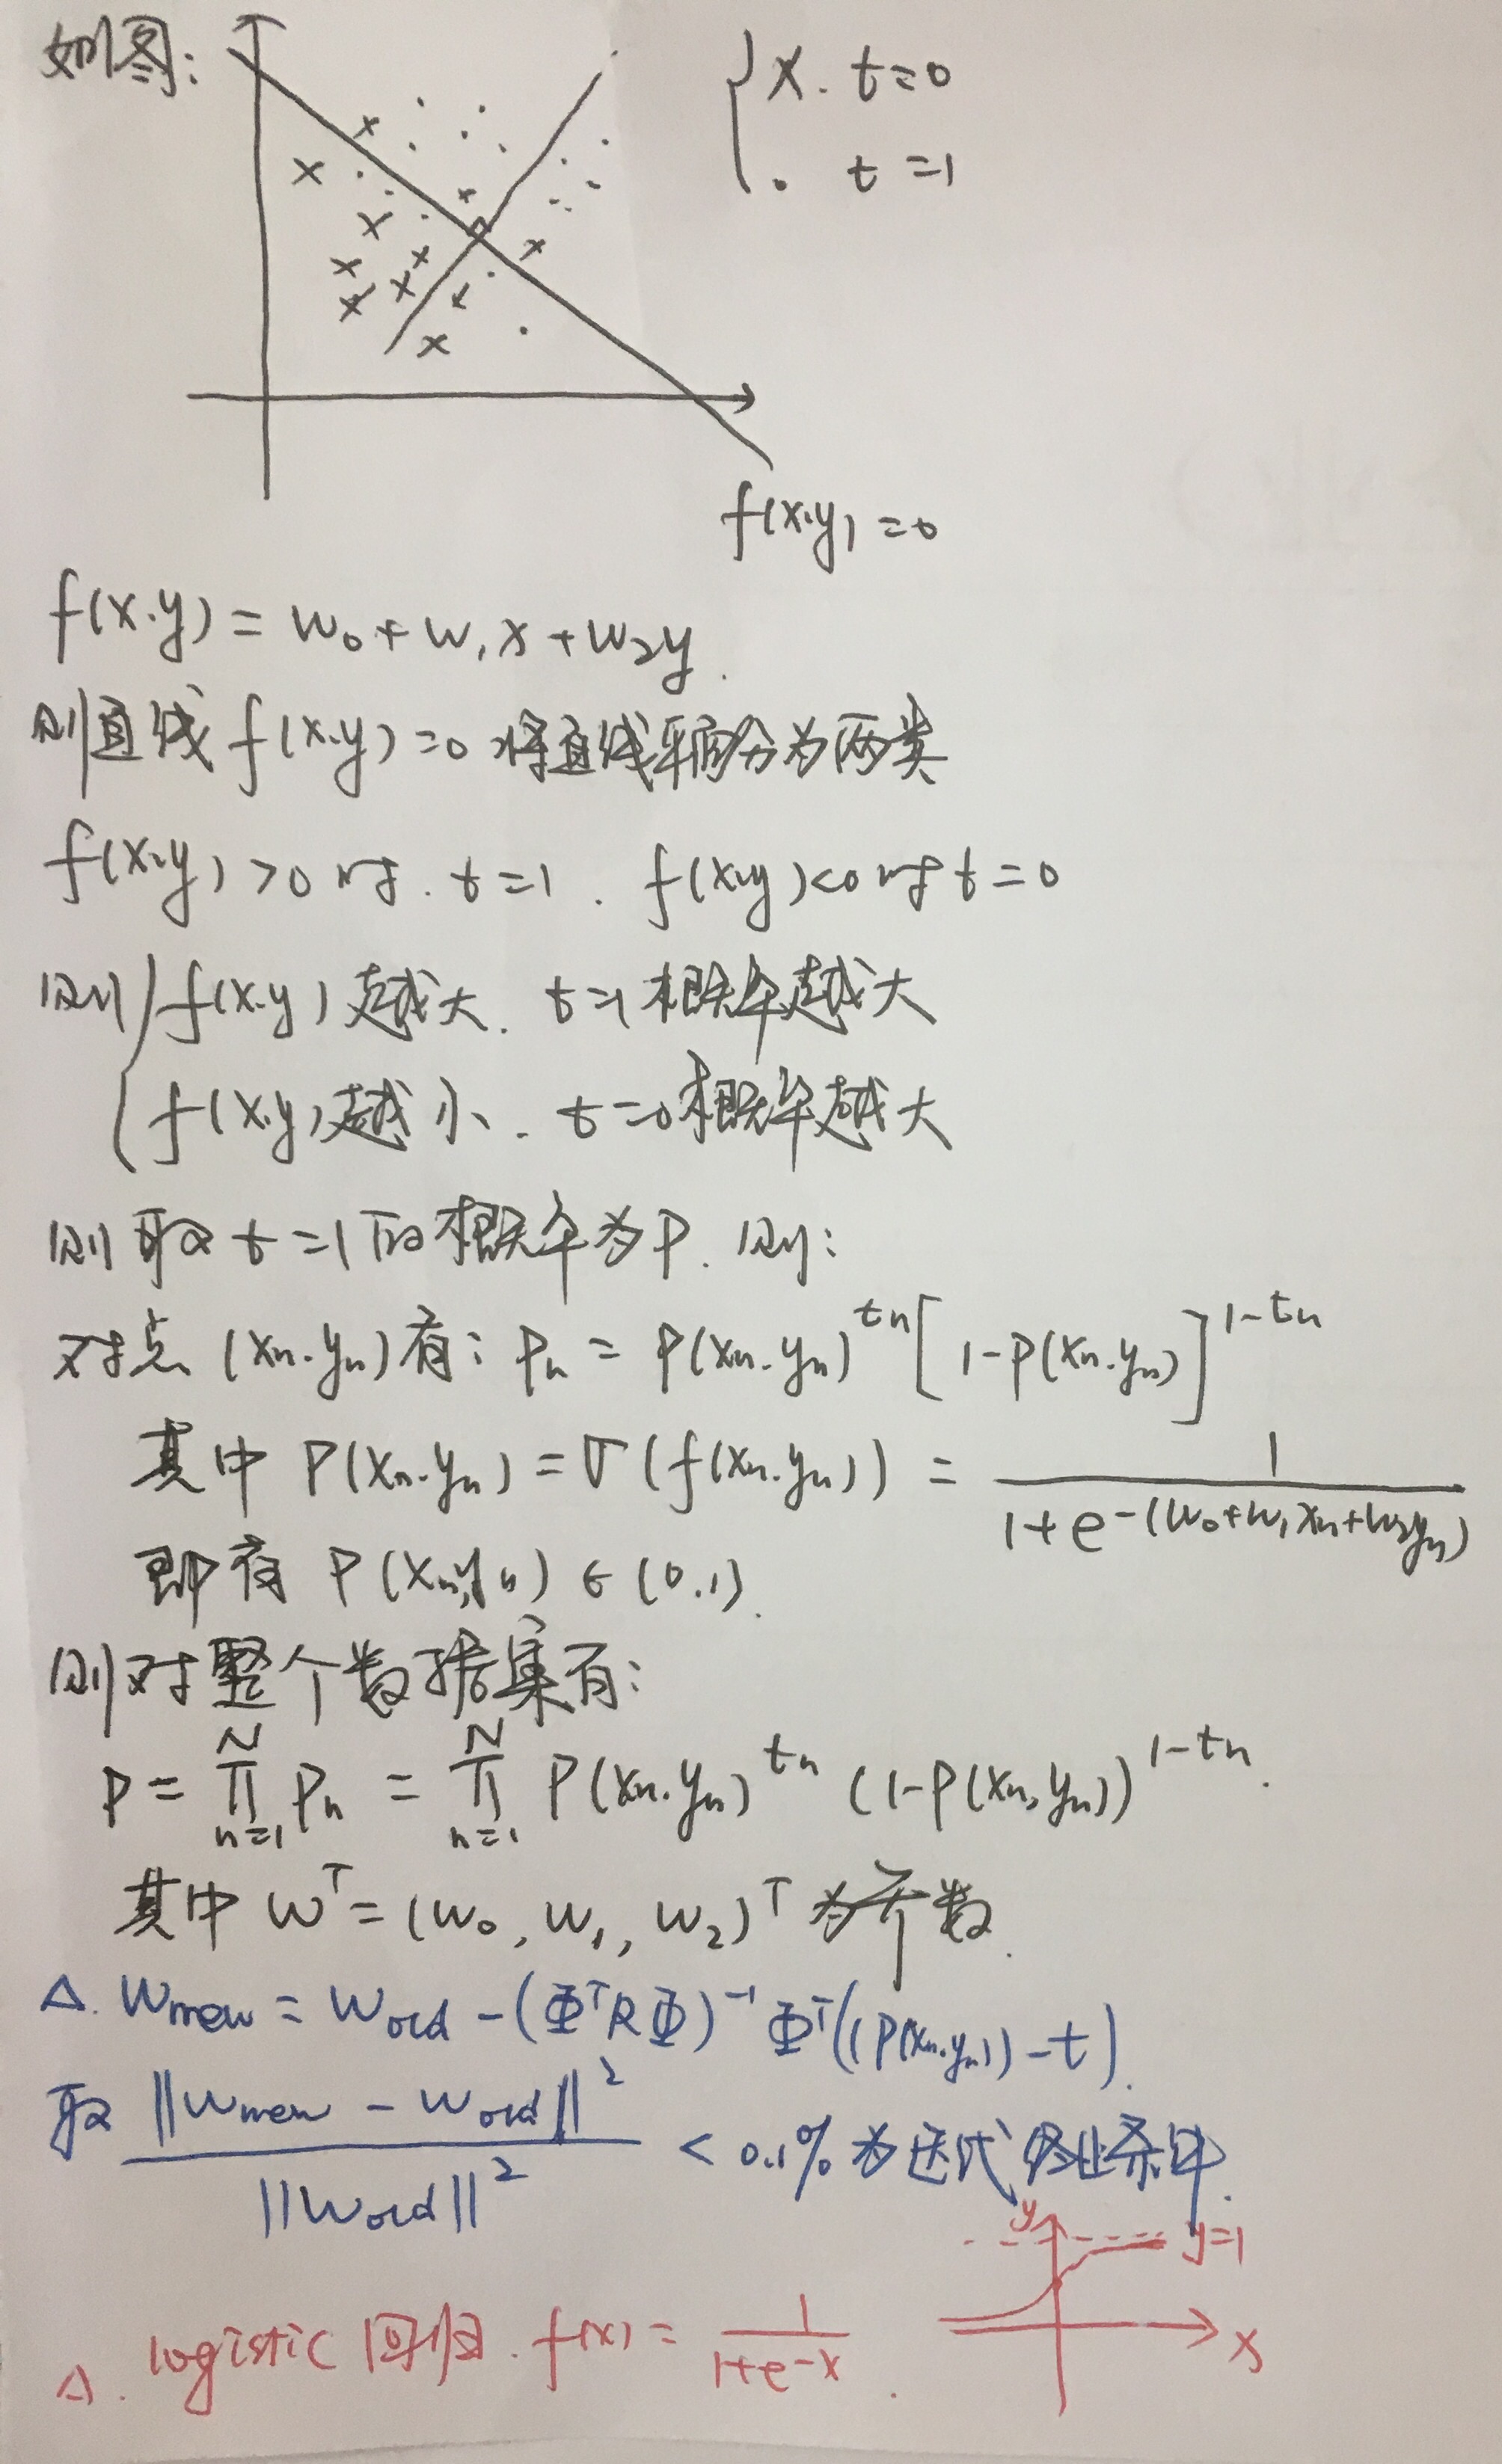 如图:
{ x. t=0
. t=1
f(x.y)=0
f(x.y) = w₀ + w₁x + w₂y.
则直线 f(x.y)=0 将直线平面分为两类
f(x.y)>0 时. t=1. f(x.y)<0 时 t=0
则 { f(x.y) 越大. t=1 概率越大
f(x.y) 越小. t=0 概率越大
则取 t=1 的概率为 P. 则:
对点 (xₙ.yₙ) 有: pₙ = P(xₙ.yₙ)^tₙ [1-P(xₙ.yₙ)]^1-tₙ
其中 P(xₙ.yₙ) = σ(f(xₙ.yₙ)) = 1/(1+e^-(w₀+w₁xₙ+w₂yₙ))
即有 P(xₙ,yₙ) ∈ (0.1).
则对整个数据集有:
P = ∏_{n=1}^{N} Pₙ = ∏_{n=1}^{N} P(xₙ.yₙ)^tₙ (1-P(xₙ,yₙ))^1-tₙ.
其中 wᵀ = (w₀, w₁, w₂)ᵀ 为参数.
Δ. Wnew = Wold - (ΦᵀRΦ)⁻¹ Φᵀ((P(xₙ.yₙ)) - t).
取 ||Wnew - Wold||² / ||Wold||² < 0.1% 为迭代终止条件.
y
y=1
x
Δ. logistic 回归. f(x) = 1/(1+e^-x).